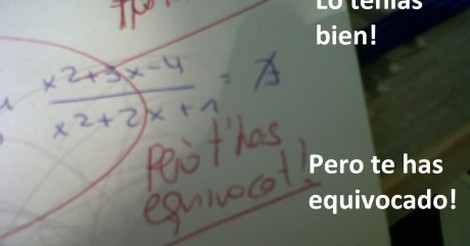 Lo tenías
bien!
x2+3x-4
x2+2x+1
=
però t'has
equivocat!
Pero te has
equivocado!